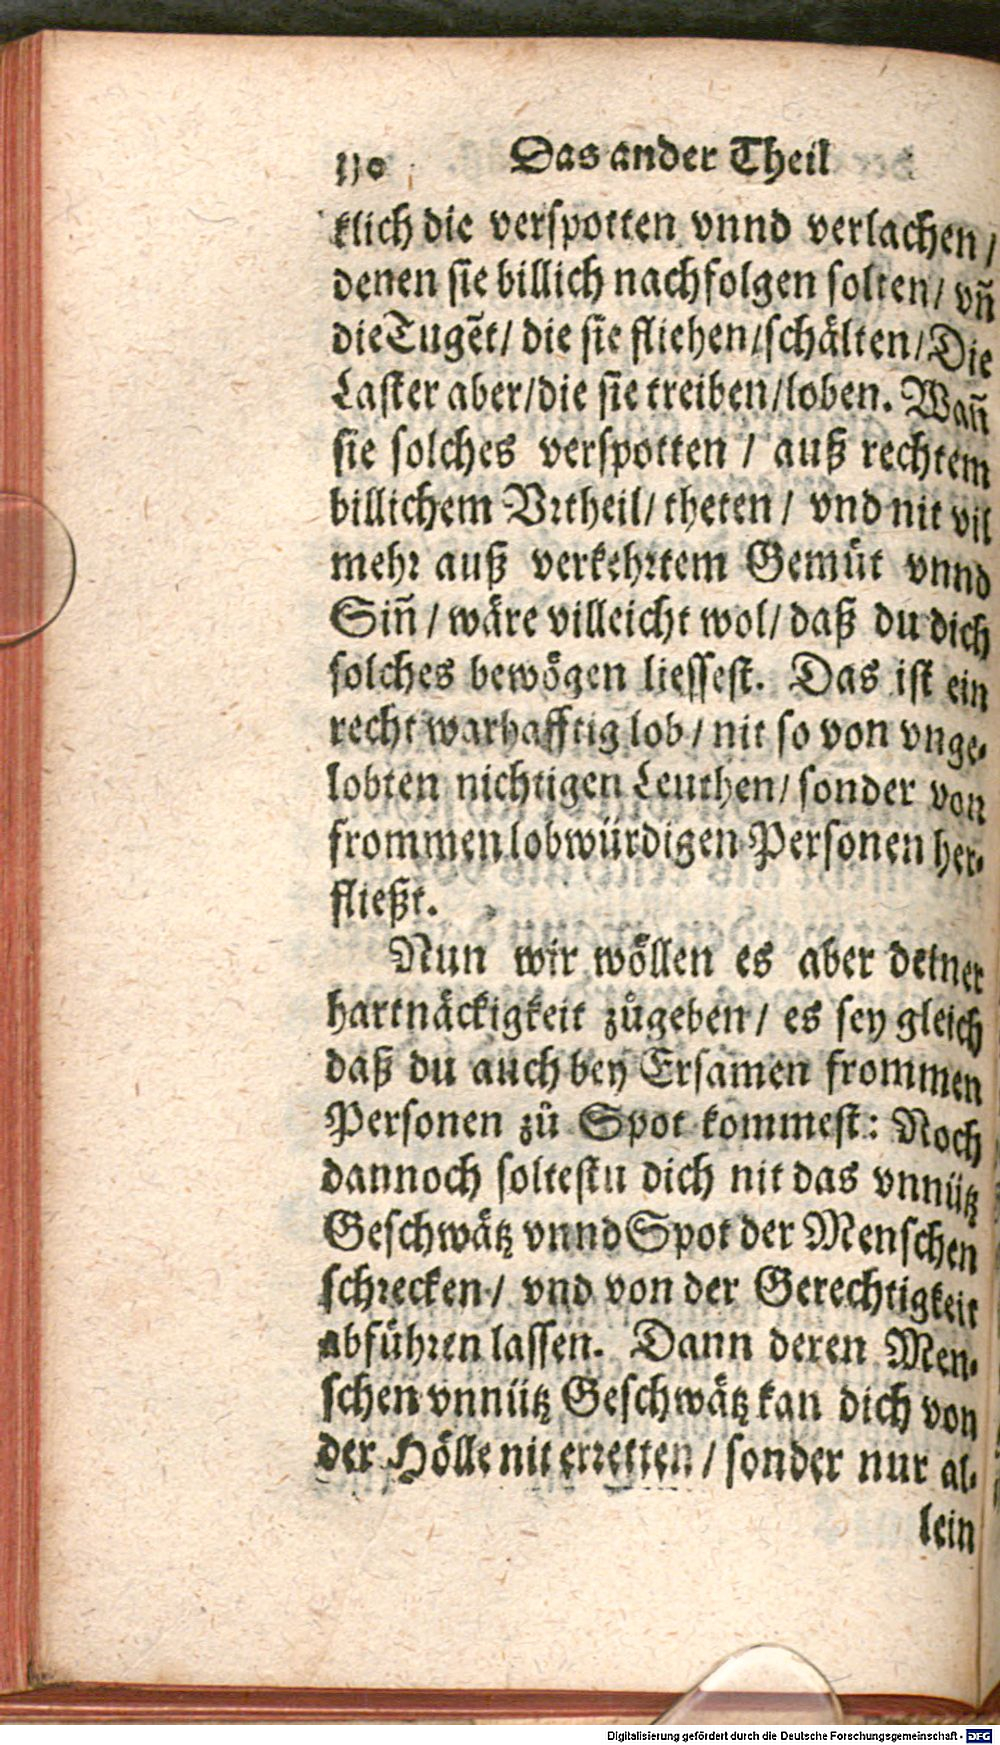 110 Das ander Theil
klich die verspotten vnnd verlachen /
denen sie billich nachfolgen solten / vñ
die Tugẽt / die sie fliehen / schälten / Die
Laster aber / die sie treiben / loben. Wañ
sie solches verspotten / auß rechtem
billichem Vrtheil / theten / vnd nit vil
mehr auß verkehrtem Gemüt vnnd
Siñ / wäre villeicht wol / daß du dich
solches bewögen liessest. Das ist ein
recht warhafftig lob / nit so von vnge-
lobten nichtigen Leuthen / sonder von
frommen lobwürdigen Personen her-
fließt.
Nun wir wöllen es aber deiner
hartnäckigkeit zůgeben / es sey gleich
daß du auch bey Ersamen frommen
Personen zů Spot kommest: Noch
dannoch soltestu dich nit das vnnütz
Geschwätz vnnd Spot der Menschen
schrecken / vnd von der Gerechtigkeit
abführen lassen. Dann deren Men-
schen vnnütz Geschwätz kan dich von
der Hölle nit erretten / sonder nur al-
lein
Digitalisierung gefördert durch die Deutsche Forschungsgemeinschaft - DFG